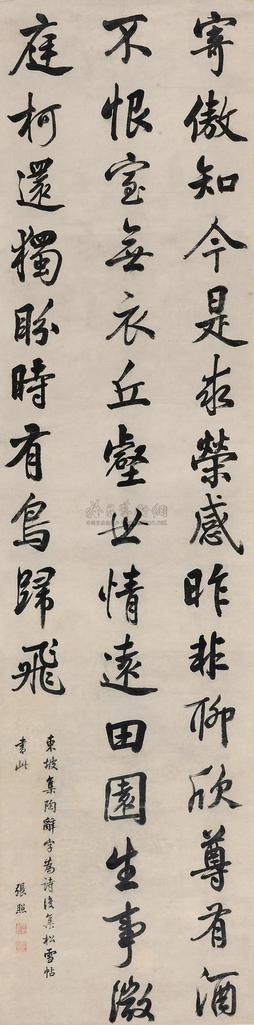 寄傲知今是求榮感昨非聊欣尊有酒
不恨室無衣丘壑世情遠田園生事微
庭柯還獨盼時有鳥歸飛
東坡集陶辭字為詩復集松雪帖
書此
張照